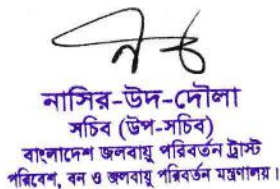 নাসির-উদ-দৌলা
সচিব (উপ-সচিব)
বাংলাদেশ জলবায়ু পরিবর্তন ট্রাস্ট
পরিবেশ, বন ও জলবায়ু পরিবর্তন মন্ত্রণালয়।